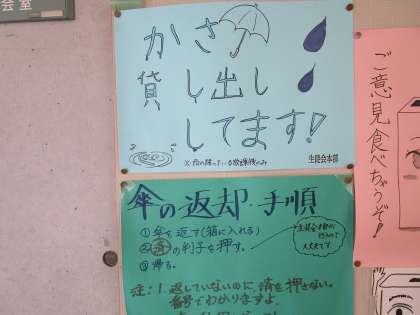 会室
かさ
貸し出し
してます!
※雨の降っている放課後のみ
生徒会本部
傘の返却手順
①傘を返す(箱に入れる)
②済の判子を押す。
③帰る。
大丈夫です
注:1. 返していないのに、済を押さない。
番号でわかりますよ。
ご意見食べちゃうぞ!